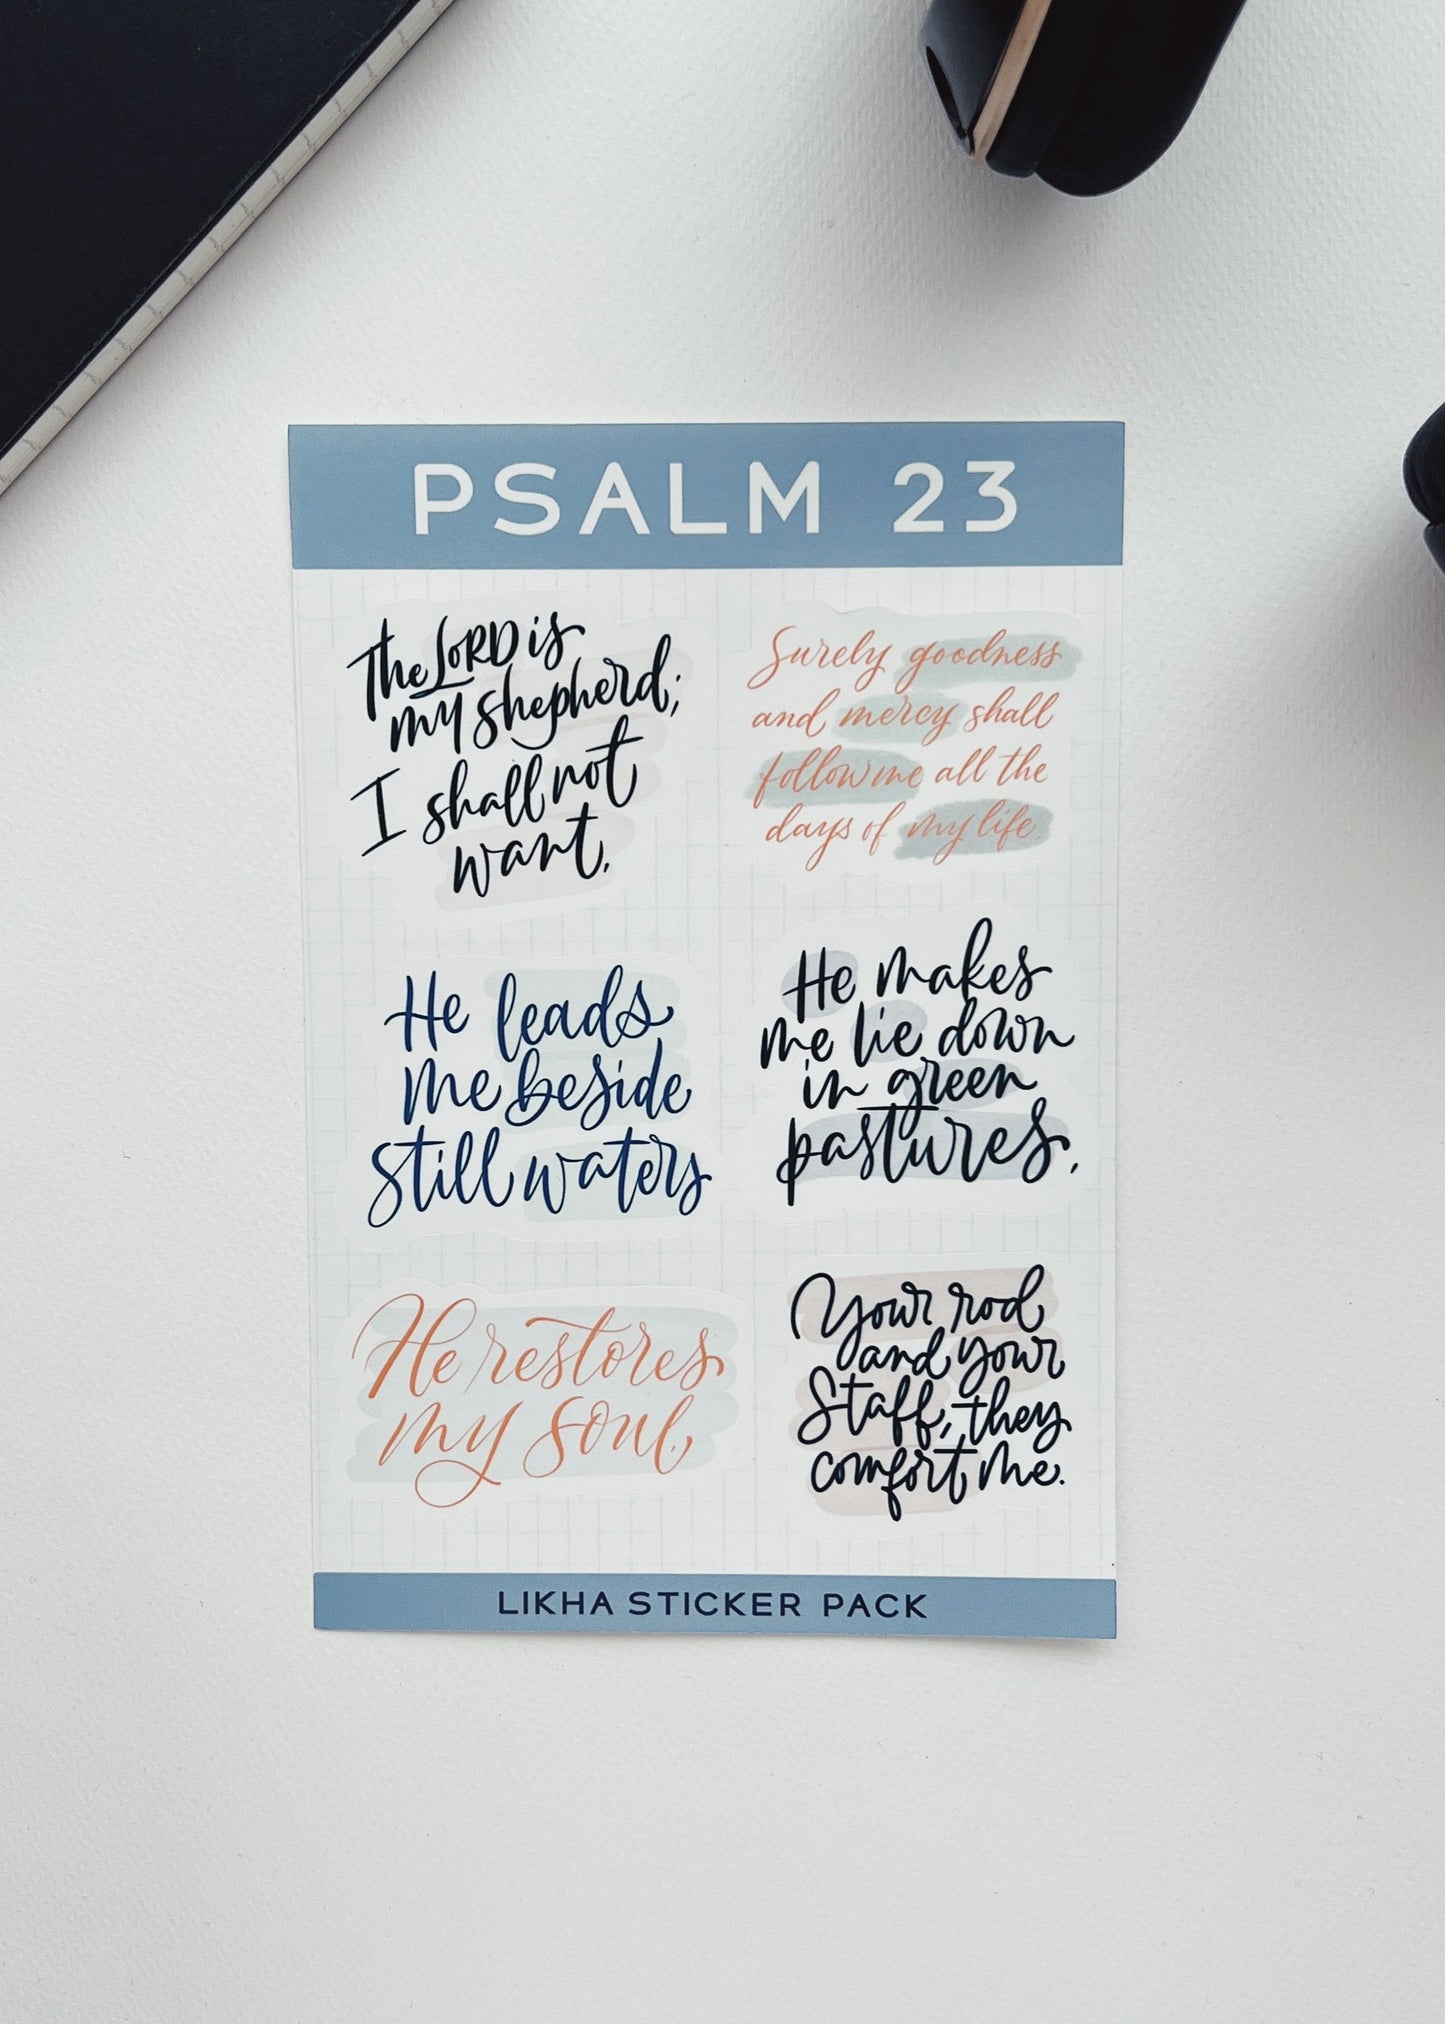 PSALM 23
The LORD is
my shepherd;
I shall not
want.
Surely goodness
and mercy shall
follow me all the
days of my life.
He leads
me beside
still waters
He makes
me lie down
in green
pastures.
He restores
my soul.
Your rod
and your
Staff, they
comfort me.
LIKHA STICKER PACK